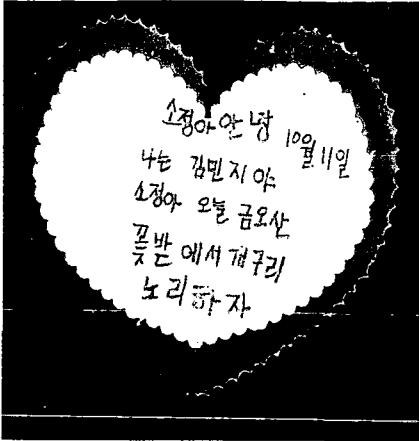 소정아 안녕
10월 11일
나는 김민지 야
소정아 오늘 금오산
꽃밭 에서 개구리
노리하자